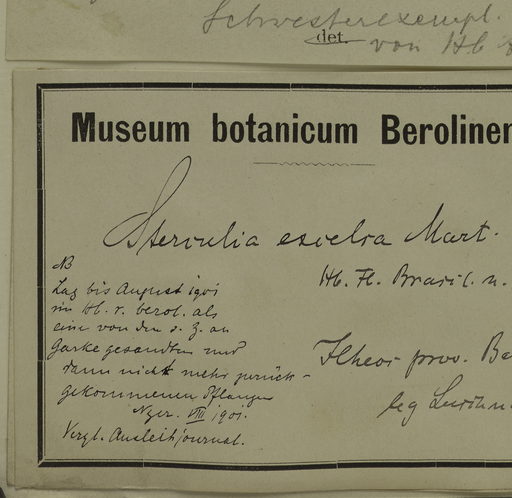 Schwesterexempl.
det.
von Hb
Museum botanicum Berolinen
Sterculia excelsa Mart.
NB
Lag bis August 1901
im Hb. r. berol. als
eine von den s. Z. an
Garke gesandten und
dann nicht mehr zurück-
gekommenen Pflanzen
VIII 1901.
Vergl. Ausleihjournal.
Hb. Fl. Brasil. n.
Ilheos prov. Ba
leg Luschn